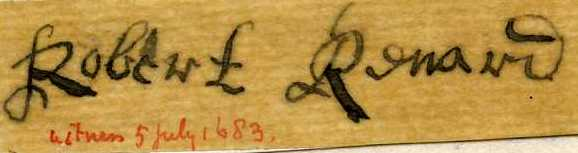 Robert Renard
witness 5 July 1683.